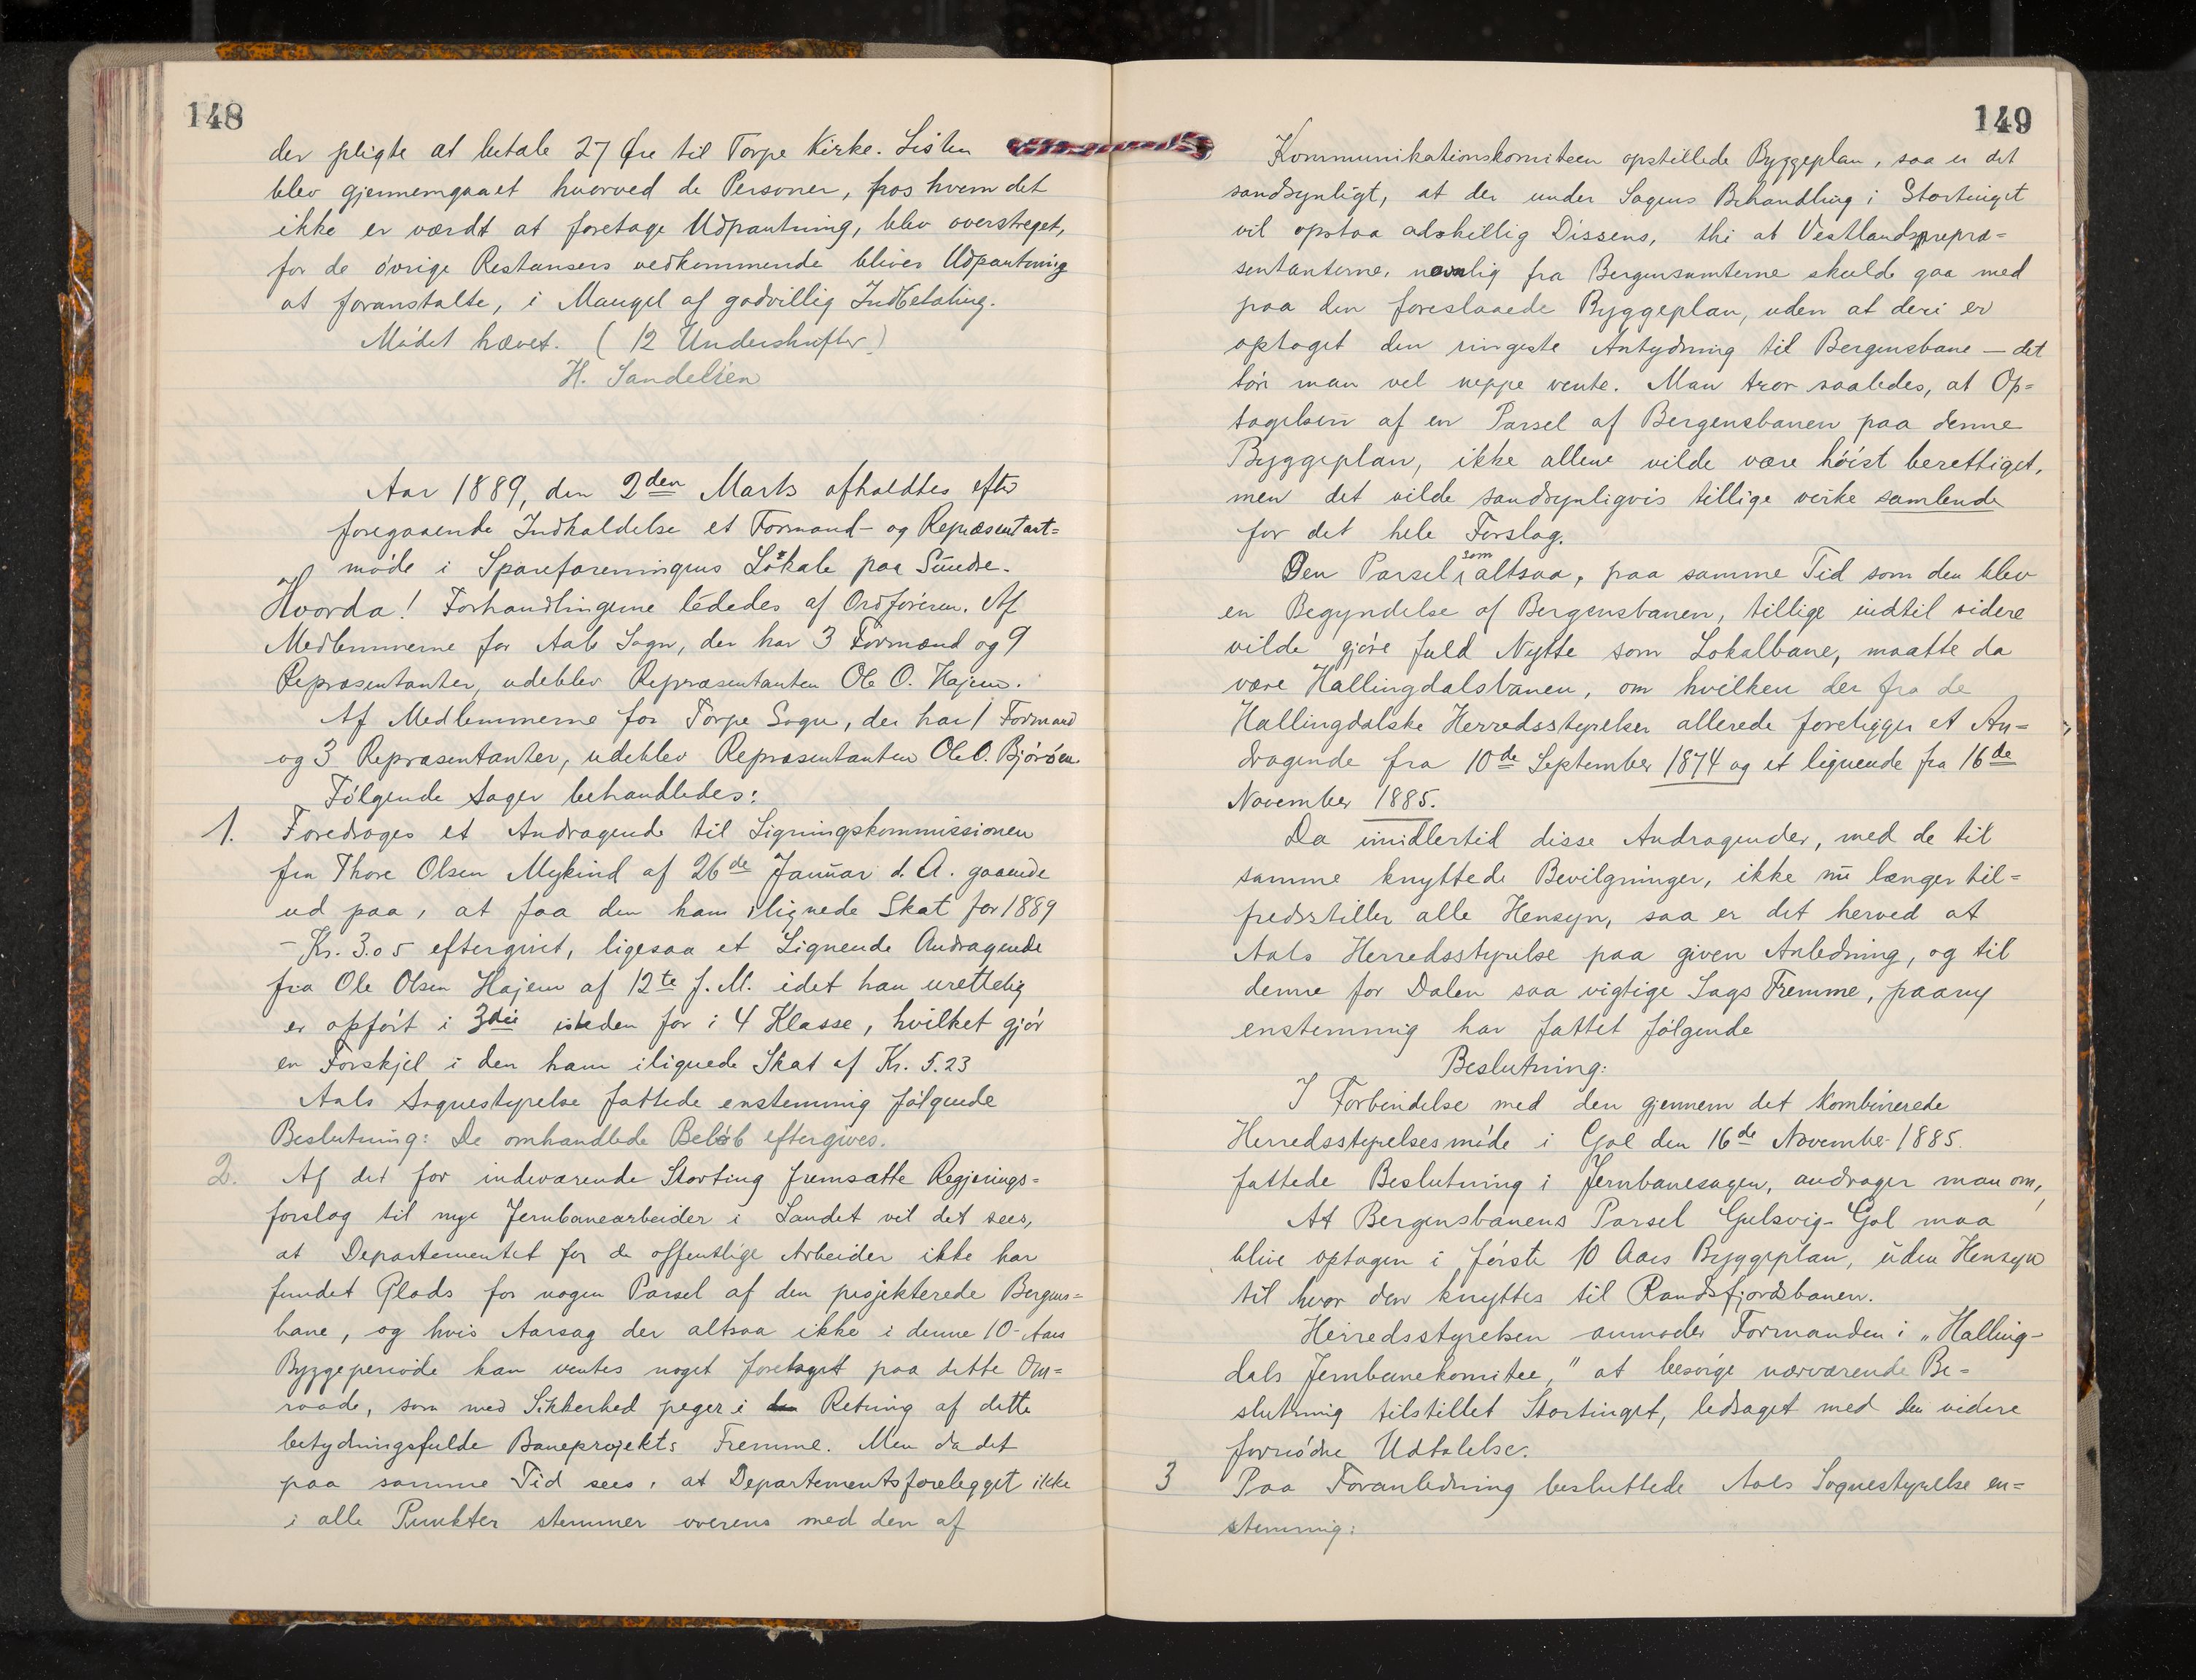 148
der pligte at betale 27 Øre til Torpe Kirke. Listen
blev gjennemgaaet hvorved de Personer, hos hvem det
ikke er værdt at foretage Udpantning, blev overstreget,
for de øvrige Restansers vedkommende bliver Udpantning
at foranstalte, i Mangel af godvillig Indbetaling.
Mødet hævet. (12 Underskrifter)
H. Sandelien
Aar 1889, den 2den Marts afholdtes efter
foregaaende Indkaldelse et Formand- og Repræsentant=
møde i Spareforeningens Lokale paa Sundre.
Hvorda! Forhandlingerne lededes af Ordføreren. Af
Medlemmerne for Aals Sogn, der har 3 Formænd og 9
Repræsentanter, udeblev Repræsentanten Ole O. Hajem.
Af Medlemmerne for Torpe Sogn, der har 1 Formand
og 3 Repræsentanter, udeblev Repræsentanten Ole O. Bjørøen
Følgende Sager behandledes:
1. Foredroges et Andragende til Ligningskommissionen
fra Thore Olsen Mykind af 26de Januar d. A. gaaende
ud paa, at faa den ham ilignede Skat for 1889
- Kr. 3.05 eftergivet, ligesaa et Lignende Andragende
fra Ole Olsen Hajem af 12te f. M. idet han urettelig
er opført i 3die isteden for i 4 Klasse, hvilket gjør
en Forskjel i den ham ilignede Skat af Kr. 5.23
Aals Sognestyrelse fattede enstemmig følgende
Beslutning: De omhandlede Beløb eftergives.
2. Af det for indeværende Storting fremsatte Regjerings=
forslag til nye Jernbanearbeider i Landet vil det sees,
at Departementet for de offentlige Arbeider ikke har
fundet Plads for nogen Parsel af den projekterede Bergens=
bane, og hvis Aarsag der altsaa ikke i denne 10-Aars
Byggeperiode kan ventes noget foretaget paa dette Om=
raade, som med Sikkerhed peger i Retning af dette
betydningsfulde Baneprojekts Fremme. Men da det
paa samme Tid sees, at Departementsforelegget ikke
i alle Punkter stemmer overens med den af
149
Kommunikationskomiteen opstillede Byggeplan, saa er det
sandsynligt, at der under Sagens Behandling i Stortinget
vil opstaa adskillig Dissens, thi at Vestlandsrepræ=
sentanterne, navnlig fra Bergensamterne skulde gaa med
paa den foreslaaede Byggeplan, uden at deri er
optaget den ringeste Antydning til Bergensbane — det
tør man vel neppe vente. Man tror saaledes, at Op=
tagelsen af en Parsel af Bergensbanen paa denne
Byggeplan, ikke allene vilde være høist berettiget,
men det vilde sandsynligvis tillige virke samlende
for det hele Forslag.
Den Parsel, som altsaa, paa samme Tid som den blev
en Begyndelse af Bergensbanen, tillige indtil videre
vilde gjøre fuld Nytte som Lokalbane, maatte da
være Hallingdalsbanen, om hvilken der fra de
Hallingdalske Herredsstyrelser allerede foreligger et An=
dragende fra 10de September 1874 og et lignende fra 16de
November 1885.
Da imidlertid disse Andragender, med de til
samme knyttede Bevilgninger, ikke nu længer til=
fredsstiller alle Hensyn, saa er det herved at
Aals Herredsstyrelse paa given Anledning, og til
denne for Dalen saa vigtige Sags Fremme, paany
enstemmig har fattet følgende
Beslutning:
I Forbindelse med den gjennem det kombinerede
Herredsstyrelsesmøde i Gol den 16de November 1885.
fattede Beslutning i Jernbanesagen, andrager man om,
At Bergensbanens Parsel Gulsvig-Gol maa
blive optagen i første 10 Aars Byggeplan, uden Hensyn
til hvor den knyttes til Randsfjordsbanen.
Herredsstyrelsen anmoder Formanden i „Halling-
dals Jernbanekomitee," at besørge nærværende Be=
slutning tilstillet Stortinget, ledsaget med den videre
fornødne Udtalelse.
3 Paa Foranledning besluttede Aals Sognestyrelse en=
stemmig: